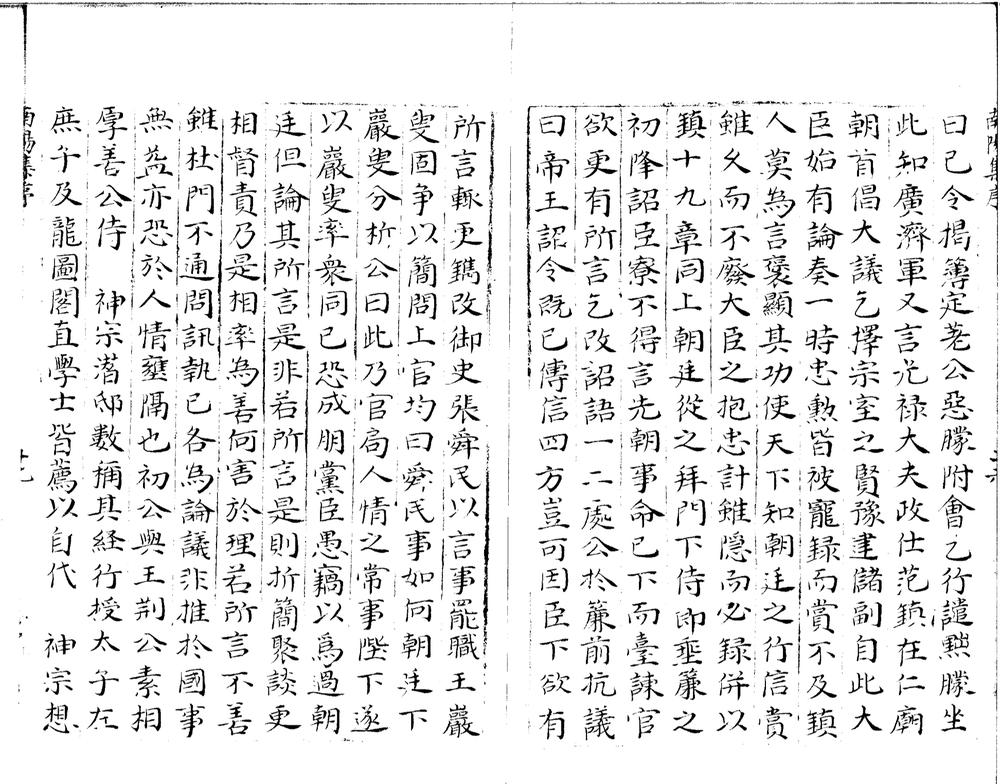 南陽集序
曰已令揭簿定荖公惡朦附會乞行譴黜朦坐
此知廣濟軍又言光禄大夫政仕范鎮在仁廟
朝首倡大議乞擇宗室之賢豫建儲副自此大
臣始有論奏一時忠勲皆被寵録而賞不及鎮
人莫為言褒顯其功使天下知朝廷之行信賞
雖久而不廢大臣之抱忠計雖隠而必録併以
鎮十九章同上朝廷從之拜門下侍郎垂簾之
初降詔臣寮不得言先朝事命已下而臺諫官
欲更有所言乞改詔語一二處公於簾前抗議
曰帝王詔令既已傳信四方豈可因臣下欲有
所言輙更鐫改御史張舜民以言事罷職王巖
叟固争以簡問上官均曰舜民事如何朝廷下
巖叟分析公曰此乃官局人情之常事陛下遂
以巖叟率衆同已恐成朋黨臣愚竊以爲過朝
廷但論其所言是非若所言是則折簡聚談更
相督責乃是相率為善何害於理若所言不善
雖杜門不通問訊執已各為論議非推於國事
無益亦恐於人情壅隔也初公與王荆公素相
厚善公侍 神宗潛邸數稱其経行授太子左
庶子及龍圖閣直學士皆薦以自代 神宗想
南陽集序